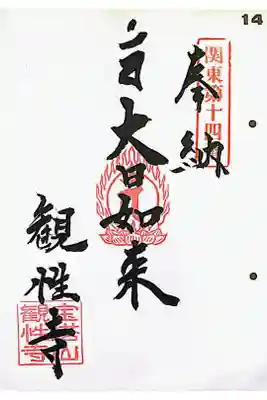 14
奉納
関東第十四
大日如来
観性寺
宝塔山
観性寺